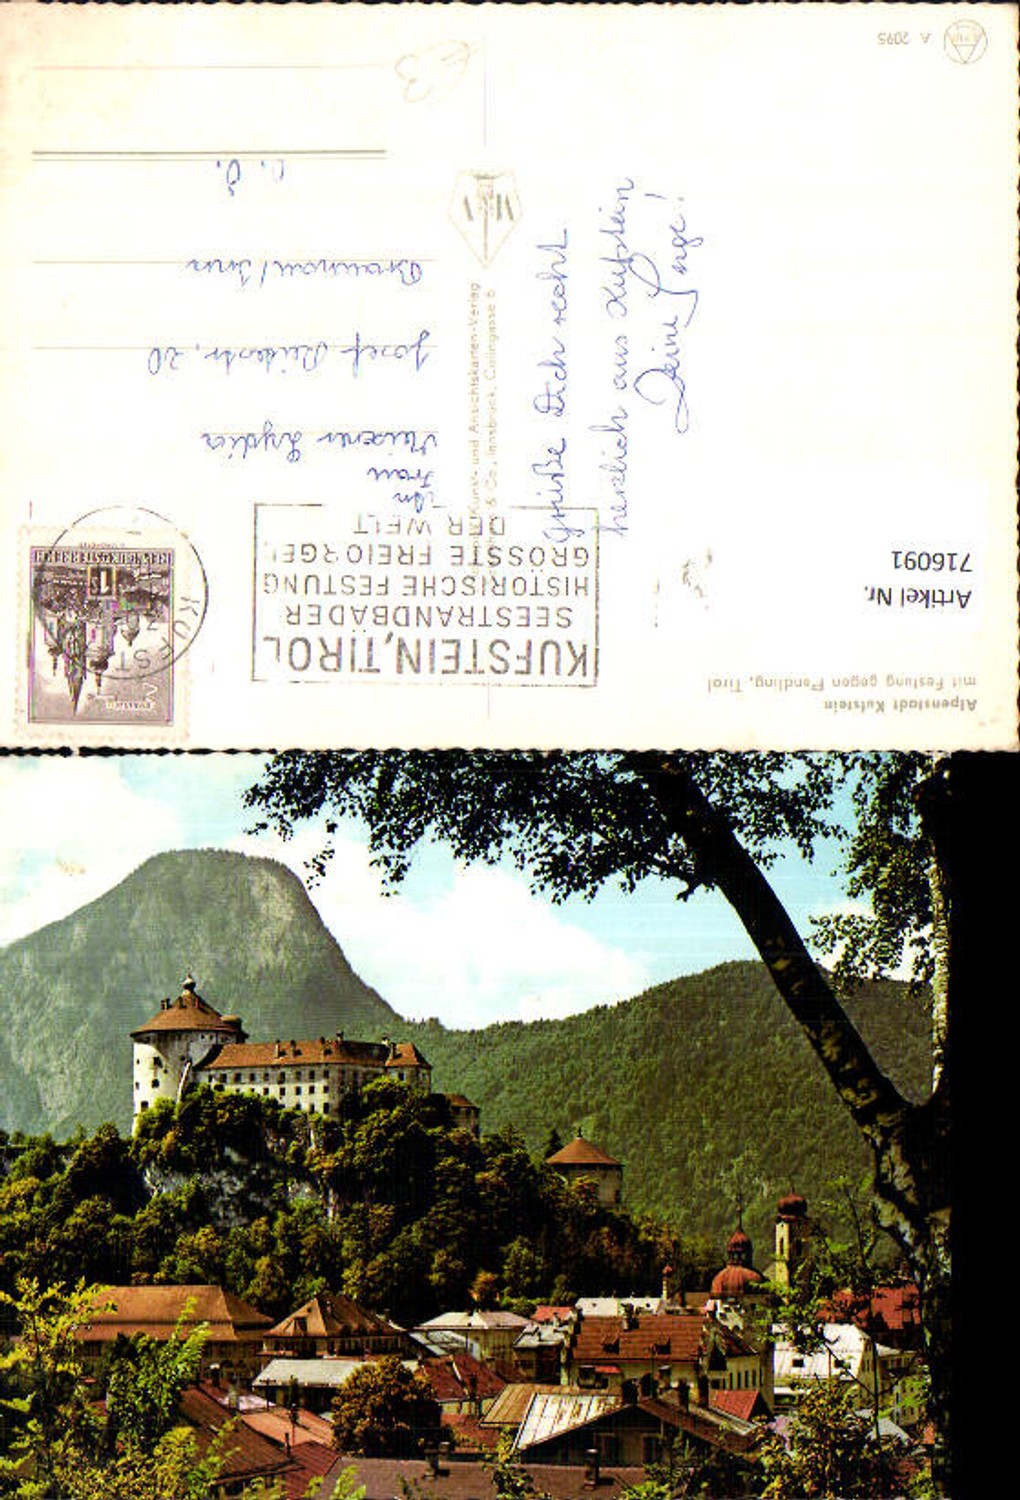 Alpenstadt Kufstein
mit Festung gegen Pendling, Tirol
Artikel Nr.
716091
Grüße Dich recht
herzlich aus Kufstein
Deine Inge!
KUFSTEIN, TIROL
SEESTRANDBÄDER
HISTORISCHE FESTUNG
GRÖSSTE FREIORGEL
DER WELT
KUFST
REPUBLIK ÖSTERREICH
1S
An
Frau
Lydia
Josef Reiterstr. 20
Braunau/Inn
O. Ö.
Kunst- und Ansichtskarten-Verlag
& Co., Innsbruck, Colingasse 6
A 2095
€3